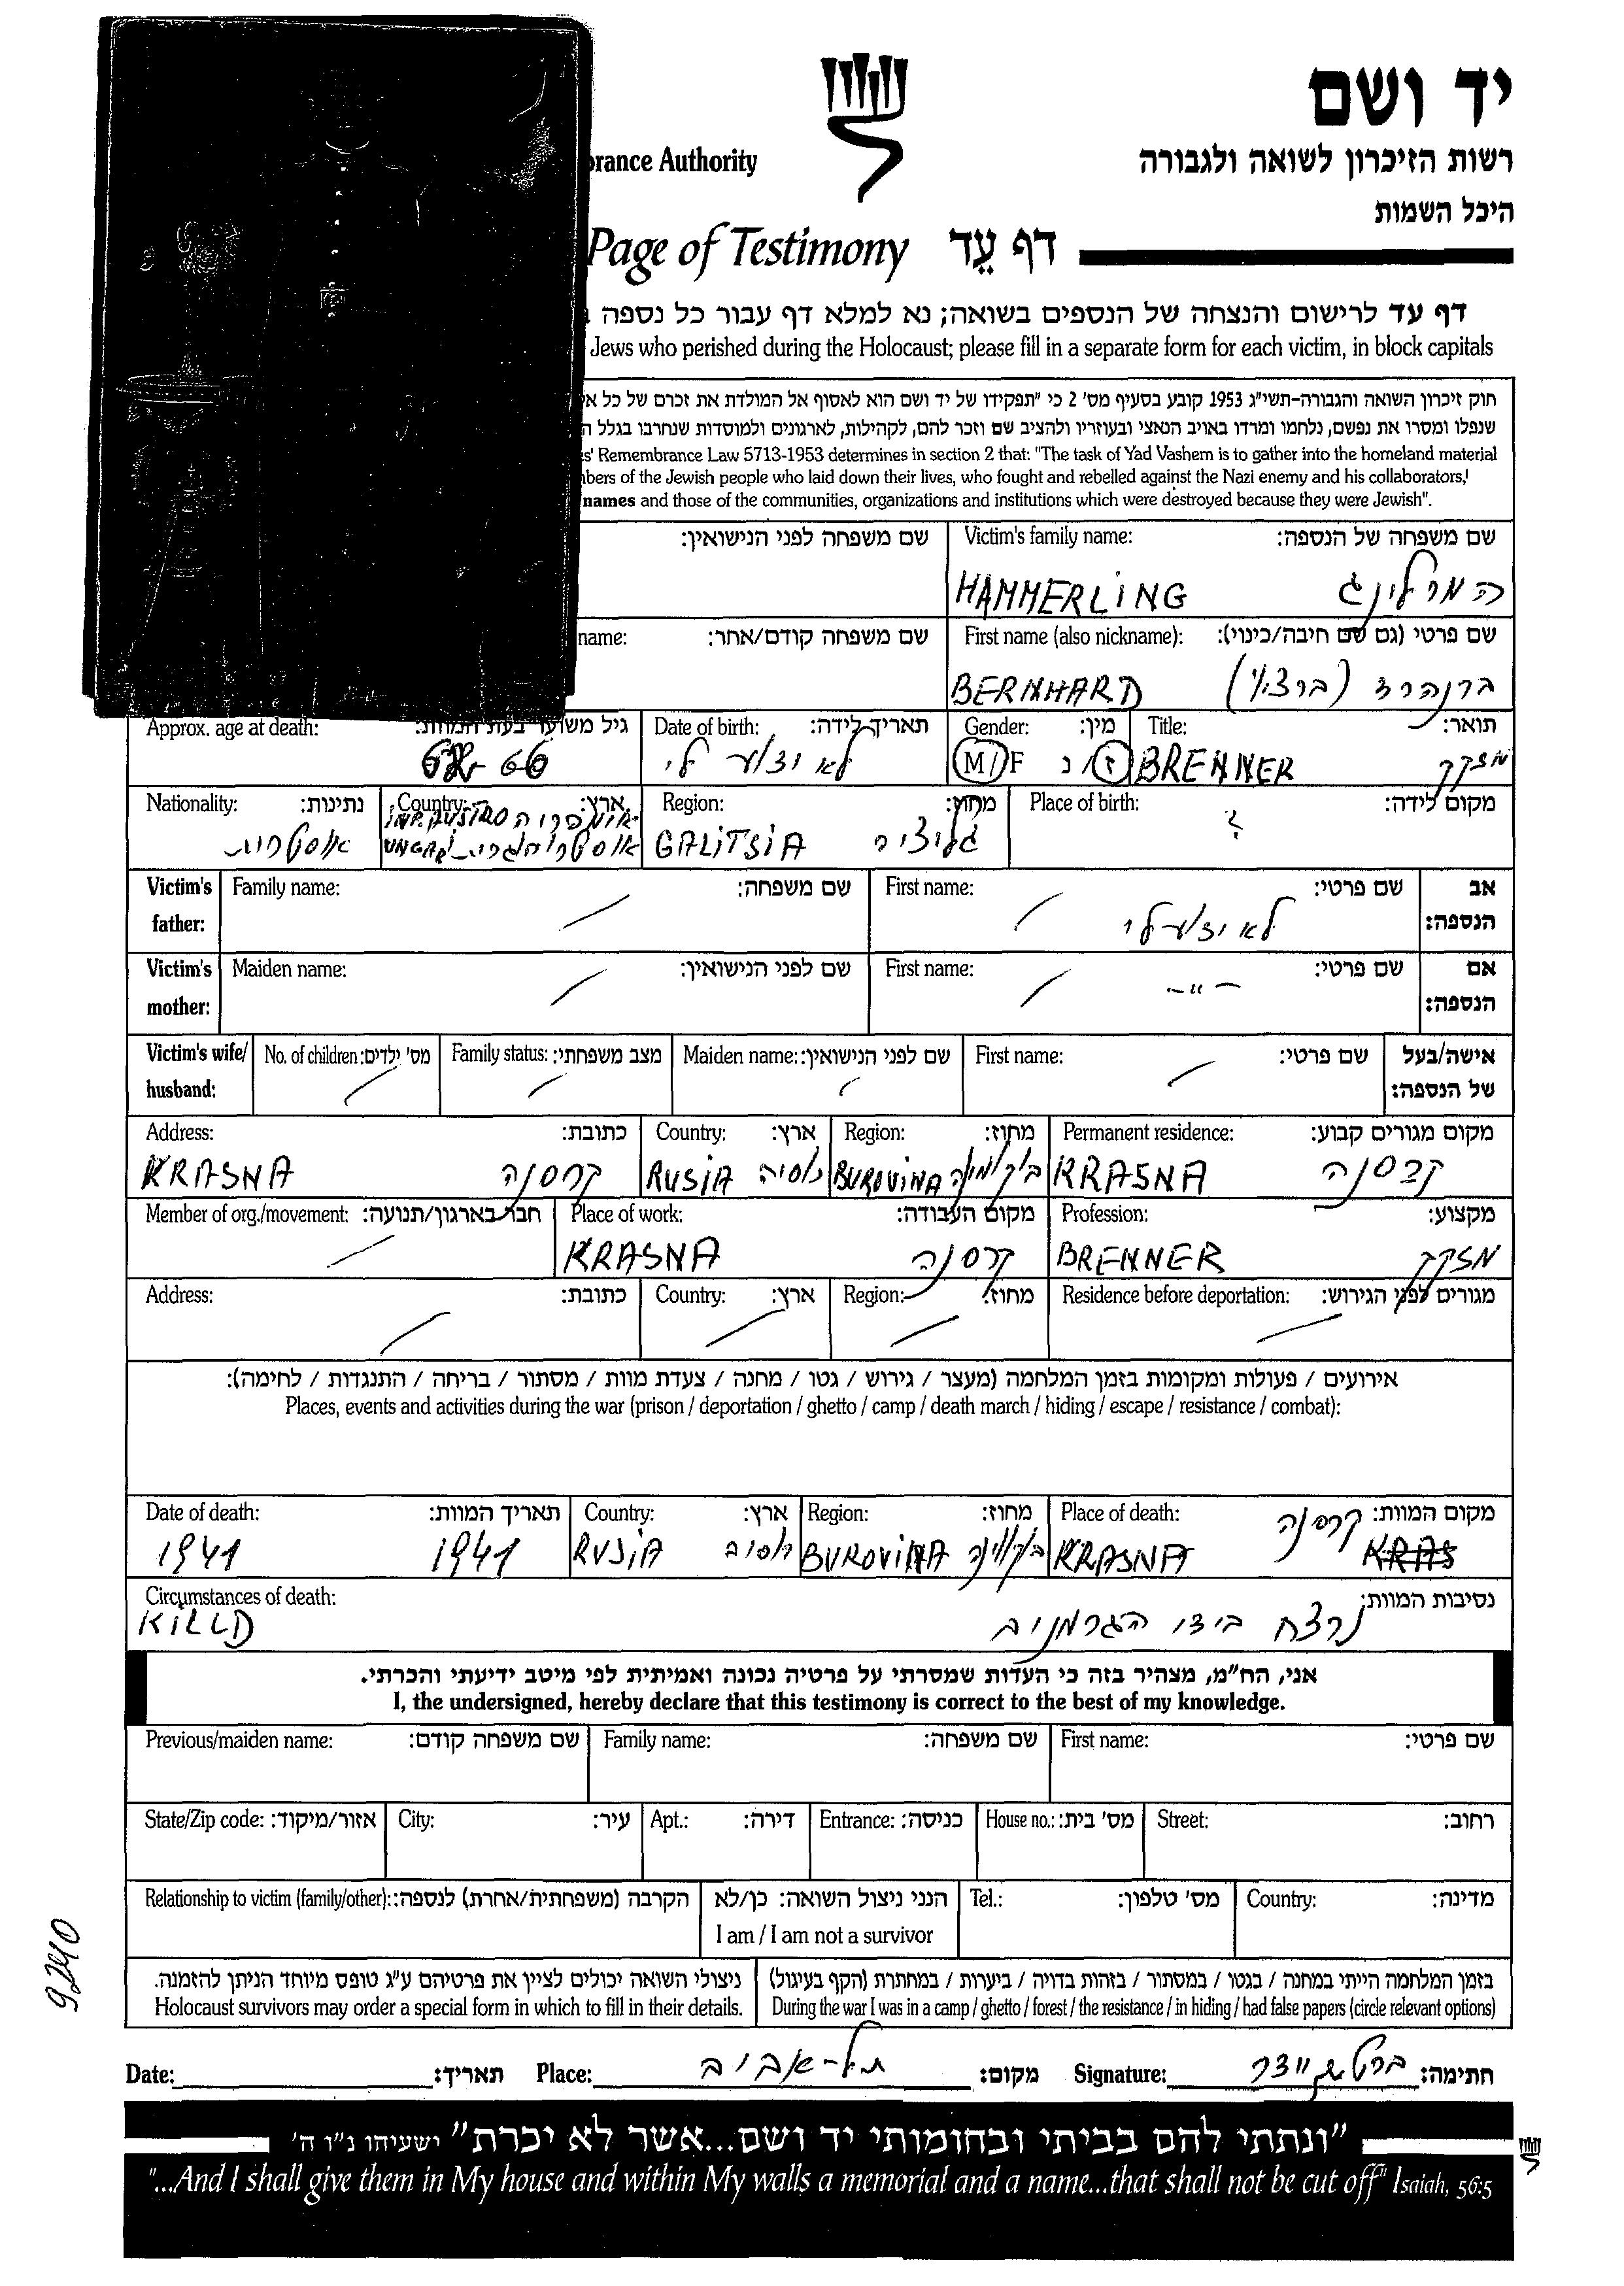 יד ושם
רשות הזיכרון לשואה ולגבורה
rance Authority
היכל השמות
Page of Testimony דף עֵד
דף עד לרישום והנצחה של הנספים בשואה; נא למלא דף עבור כל נספה
Jews who perished during the Holocaust; please fill in a separate form for each victim, in block capitals
חוק זיכרון השואה והגבורה-תשי"ג 1953 קובע בסעיף מס' 2 כי "תפקידו של יד ושם הוא לאסוף אל המולדת את זכרם של כל
שנפלו ומסרו את נפשם, נלחמו ומרדו באויב הנאצי ובעוזריו ולהציב שם וזכר להם, לקהילות, לארגונים ולמוסדות שנחרבו בגלל
s' Remembrance Law 5713-1953 determines in section 2 that: "The task of Yad Vashem is to gather into the homeland material
bers of the Jewish people who laid down their lives, who fought and rebelled against the Nazi enemy and his collaborators,
names and those of the communities, organizations and institutions which were destroyed because they were Jewish".
שם משפחה לפני הנישואין: Victim's family name: שם משפחה של הנספה:
HAMMERLING המרלינג
name: שם משפחה קודם/אחר: First name (also nickname): שם פרטי (גם שם חיבה/כינוי):
BERNHARD ברנהרד
Approx. age at death: גיל משוער בעת המוות: Date of birth: תאריך לידה: Gender: מין: Title: תואר:
66 לא ידוע לי M/F ז/נ BRENNER מזקק
Nationality: נתינות: Country: ארץ: Region: מחוז: Place of birth: מקום לידה:
אוסטרית GALITSIA גליציה ?
Victim's father: Family name: שם משפחה: First name: שם פרטי: אב הנספה:
לא ידוע לי
Victim's mother: Maiden name: שם לפני הנישואין: First name: שם פרטי: אם הנספה:
-"-
Victim's wife/ husband: No. of children: מס' ילדים: Family status: מצב משפחתי: Maiden name: שם לפני הנישואין: First name: שם פרטי: אישה/בעל של הנספה:
Address: כתובת: Country: ארץ: Region: מחוז: Permanent residence: מקום מגורים קבוע:
KRASNA קרסנה RUSIA רוסיה BUKOVINA בוקובינה KRASNA קרסנה
Member of org./movement: חבר בארגון/תנועה: Place of work: מקום העבודה: Profession: מקצוע:
KRASNA קרסנה BRENNER מזקק
Address: כתובת: Country: ארץ: Region: מחוז: Residence before deportation: מגורים לפני הגירוש:
אירועים / פעולות ומקומות בזמן המלחמה (מעצר / גירוש / גטו / מחנה / צעדת מוות / מסתור / בריחה / התנגדות / לחימה):
Places, events and activities during the war (prison / deportation / ghetto / camp / death march / hiding / escape / resistance / combat):
Date of death: תאריך המוות: Country: ארץ: Region: מחוז: Place of death: מקום המוות:
1941 1941 RUSIA רוסיה BUKOVINA בוקובינה KRASNA קרסנה
Circumstances of death: נסיבות המוות:
KILLD נרצח בידי הגרמנים
אני, הח"מ, מצהיר בזה כי העדות שמסרתי על פרטיה נכונה ואמיתית לפי מיטב ידיעתי והכרתי.
I, the undersigned, hereby declare that this testimony is correct to the best of my knowledge.
Previous/maiden name: שם משפחה קודם: Family name: שם משפחה: First name: שם פרטי:
State/Zip code: אזור/מיקוד: City: עיר: Apt.: דירה: Entrance: כניסה: House no.: מס' בית: Street: רחוב:
Relationship to victim (family/other): הקרבה (משפחתית/אחרת) לנספה: הנני ניצול השואה: כן/לא Tel.: מס' טלפון: Country: מדינה:
I am / I am not a survivor
9240
ניצולי השואה יכולים לציין את פרטיהם ע"ג טופס מיוחד הניתן להזמנה. בזמן המלחמה הייתי במחנה / בגטו / במסתור / בזהות בדויה / ביערות / במחתרת (הקף בעיגול)
Holocaust survivors may order a special form in which to fill in their details. During the war I was in a camp / ghetto / forest / the resistance / in hiding / had false papers (circle relevant options)
Date: תאריך: Place: תל-אביב מקום: Signature: חתימה:
"ונתתי להם בביתי ובחומותי יד ושם...אשר לא יכרת" ישעיהו נ"ו ה'
"...And I shall give them in My house and within My walls a memorial and a name...that shall not be cut off" Isaiah, 56:5